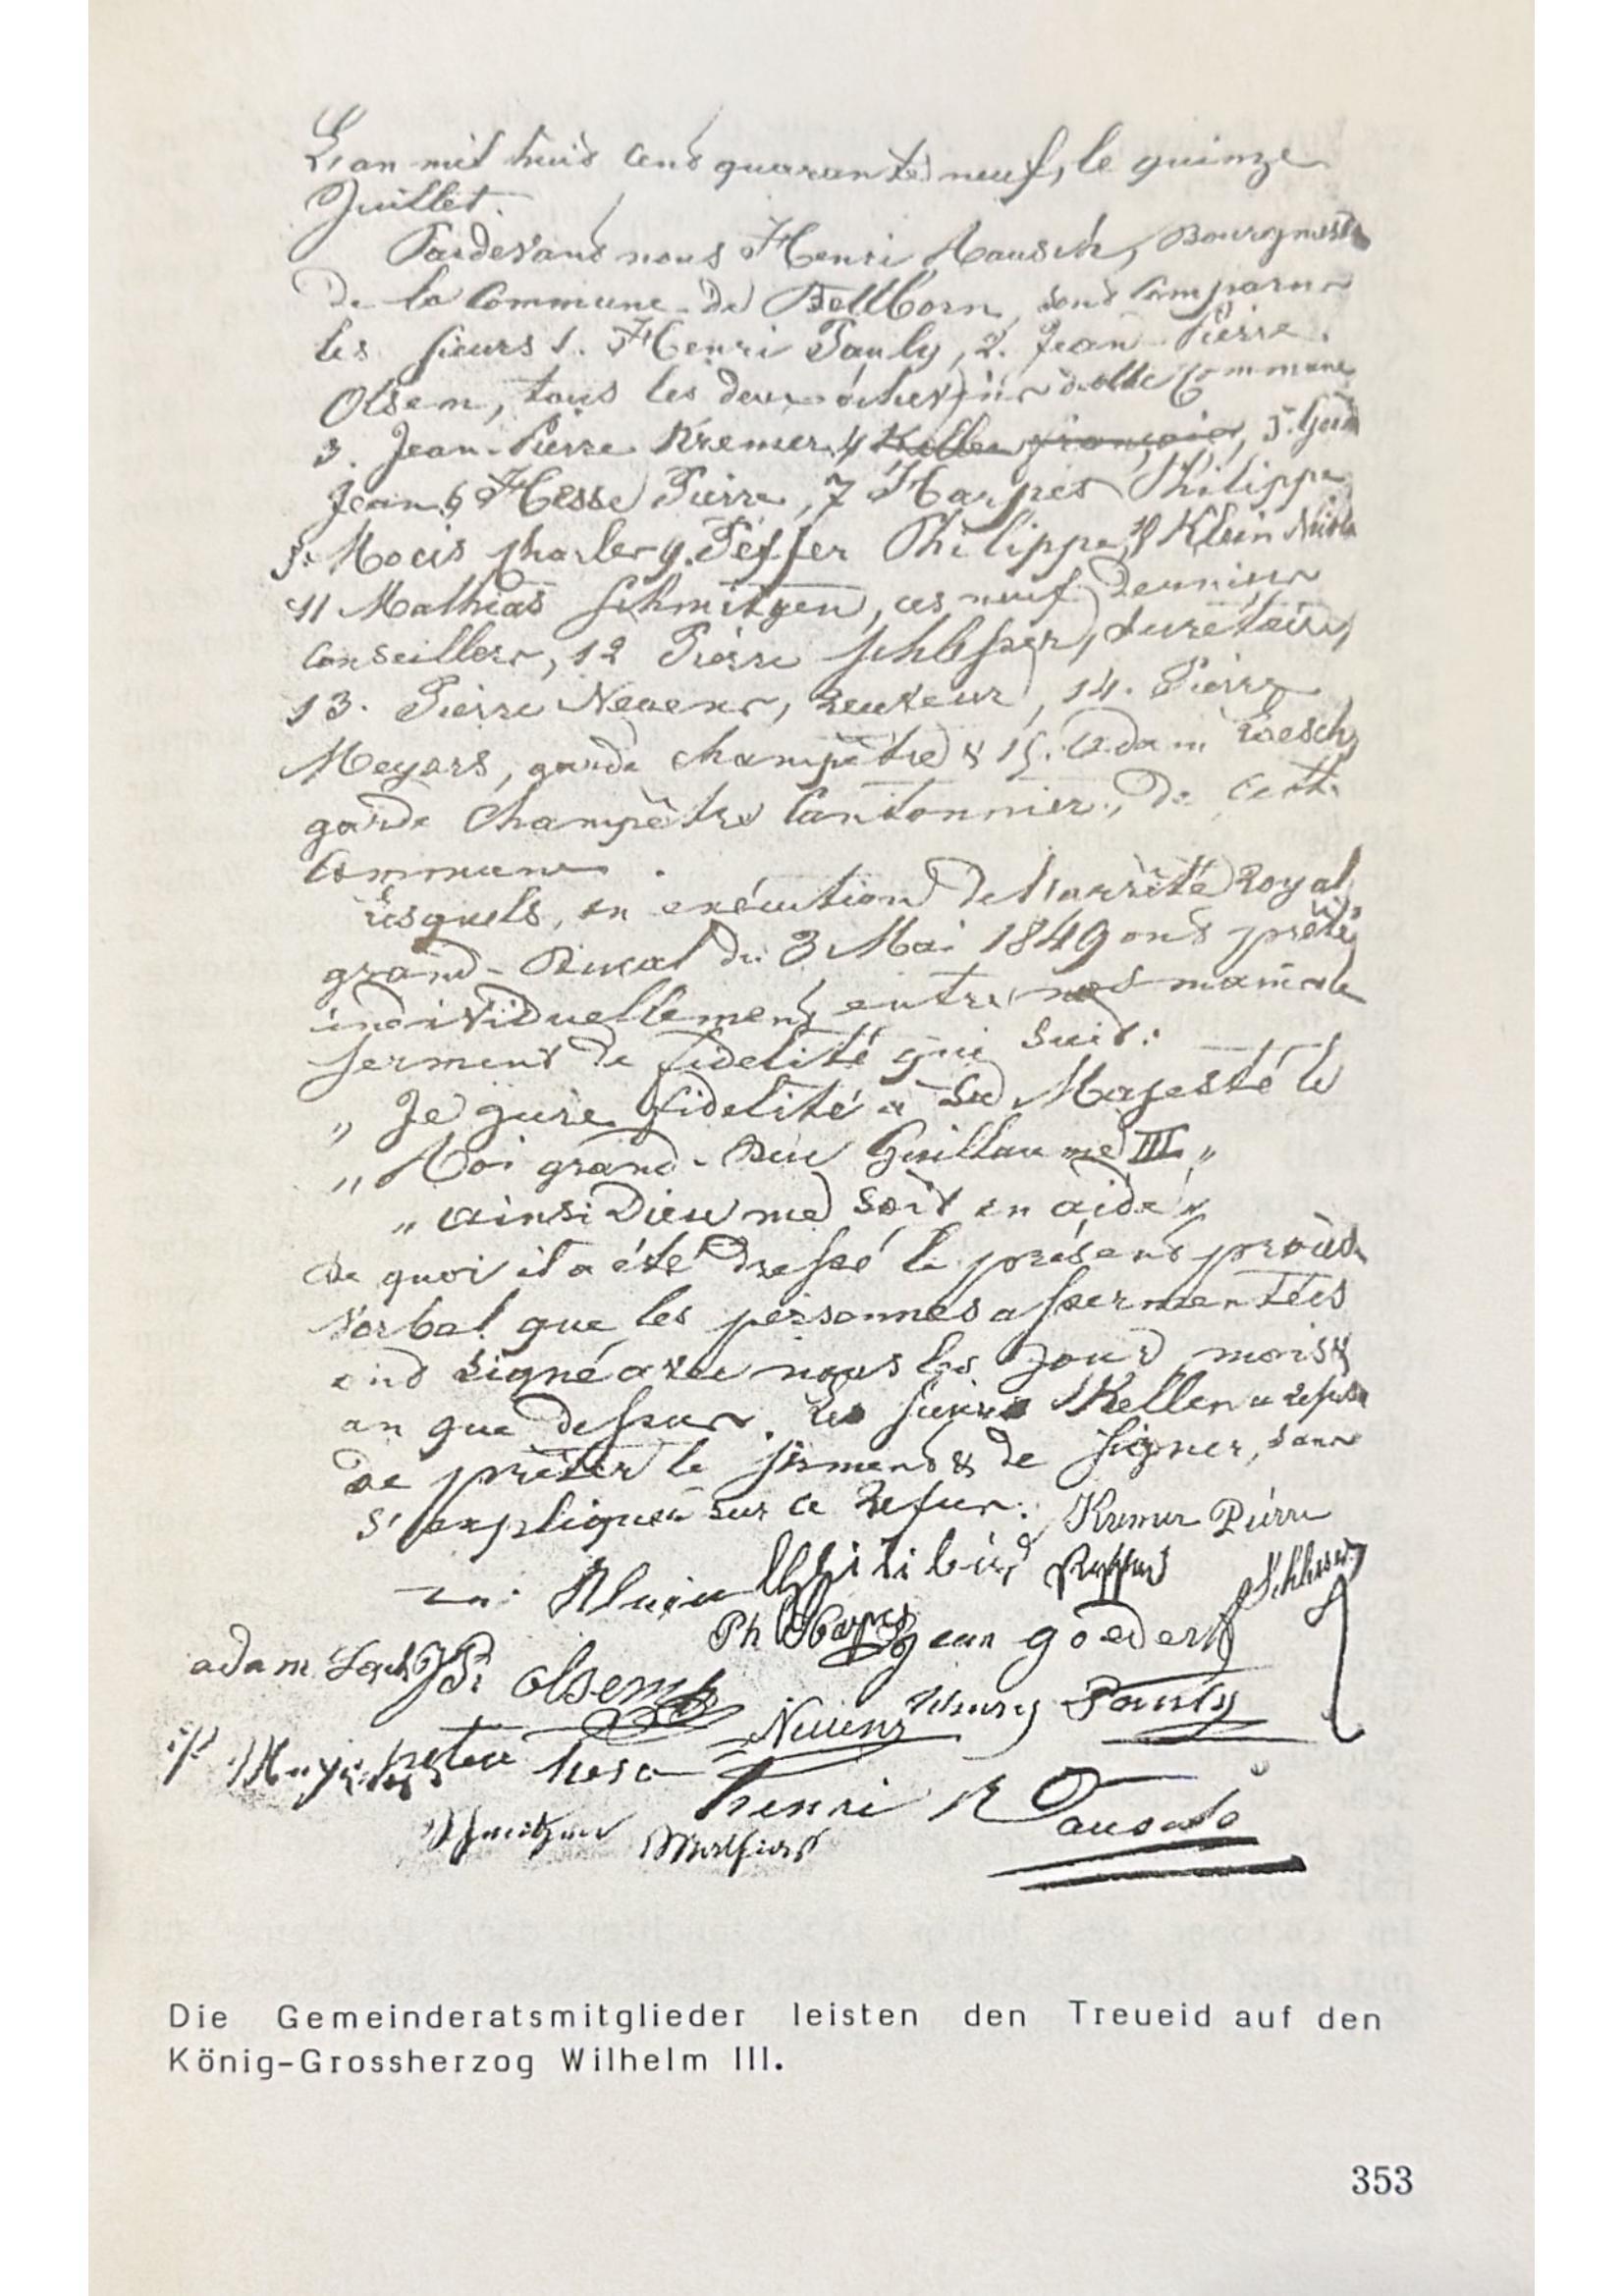 L'an mil huit cent quarante neuf, le quinze
Juillet.
Pardevant nous Henri Rausch, Bourgmestre
de la Commune de Bettborn, sont comparus
les sieurs 1. Henri Pauly, 2. Jean-Pierre
Olsem, tous les deux échevins de cette Commune
3. Jean-Pierre Kremer, 4 Kellen françois, 5. Goed
Jean, 6 Hesse Pierre, 7 Harpes Philippe
8. Charles 9. Peffer Philippe, 10 Klein Nicola
11 Mathias Schmitgen, ces neuf derniers
Conseillers, 12 Pierre Schlesser, secrétaire,
13. Pierre Neuens, receveur, 14. Pierre
Meyers, garde champêtre & 15. Adam Loesch,
garde champêtre Cantonnier, de cette
Commune.
Lesquels, en exécution de l'arrêté Royal
grand-Ducal du 3 Mai 1849 ont prêté,
individuellement, entre nos mains le
serment de fidelité qui suit:
„ Je jure fidelité à Sa Majesté le
„ Roi grand-Duc Guillaume III „
„ ainsi Dieu me soit en aide „
de quoi il a été dressé le présent procès
verbal que les personnes assermentées
ont signé avec nous les jour, mois &
an que dessus. Le sieur Kellen a refusé
de prêter le serment & de signer, sans
s'expliquer sur ce refus. Kremer Pierre
Klein Peffer Schlesser
Ph Harpes Jean goedert
adam Loesch JP olsem
Neuens Henry Pauly
Meyers peter hess
henri Rausch
Schmitgen Mathias
Die Gemeinderatsmitglieder leisten den Treueid auf den
König-Grossherzog Wilhelm III.
353